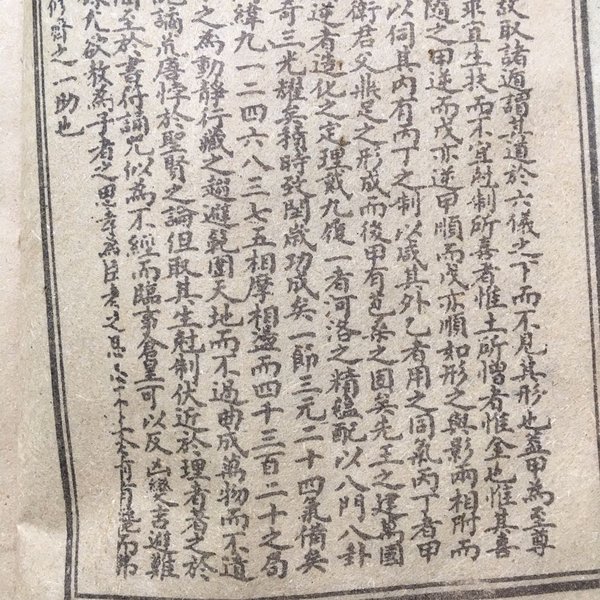 故取諸遁謂其道於六儀之下而不見其形也蓋甲為至尊
乘直生扶而不宜尅制所喜者惟土所憎者惟金也惟其喜
隨之甲逆而戊亦逆甲順而戊亦順如形之與影兩相附而
以伺其內有丙丁之制以威其外乙者用之同氣丙丁者甲
衛君父鼎足之形成而後甲有苞桑之固矣先王之建萬國
逆者造化之定理戴九復一者河洛之精蘊配以八門八卦
奇三光耀矣積時致閏歲功成矣一節三元二十四氣備矣
緯九一二四六八三七五相摩相盪而四千三百二十之局
之為動靜行藏之趨避範圍天地而不過曲成萬物而不遺
誕謫荒唐悖於聖賢之論但取其生尅制伏近於理者著之於
至於書符誦咒似為不經而臨事倉皇可以反凶變吉避難
欲教為子者之思孝為臣者之思忠
修齡之一助也